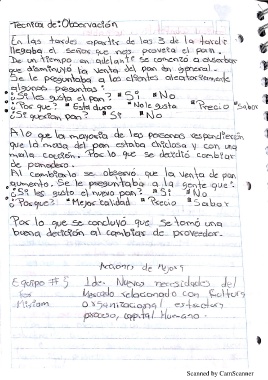 Tecnica de: Observación
En las tardes apartir de las 3 de la tarde
llegaba el señor que nos proveia el pan.
De un tiempo en adelante se comenzo a observar
que disminuyo la venta del pan en general.
Se le preguntaba a los clientes aleatoriamente
algunas preguntas:
¿Si les gusta el pan? *Si *No
¿Por que? *Esta duro *No le gusta *Precio *Sabor
¿Si querian pan? *Si *No
A lo que la mayoria de las personas respondieron
que la masa del pan estaba chiclosa y con una
mala cocción. Por lo que se decidio cambiar
de panadero.
Al cambiarlo se observó que la venta de pan
aumento. Se le preguntaba a la gente que:
¿Si les gusto el nuevo pan? *Si *No
¿Porque? *Mejor calidad *Precio *Sabor
Por lo que se concluyó que se tomó una
buena decición al cambiar de proveedor.
Acciones de Mejora
Equipo #5 1de. Nuevas necesidades del
Mercado relacionado con Cultura
Miriam. organizacional, estructura
proceso, capital humano.
Scanned by CamScanner